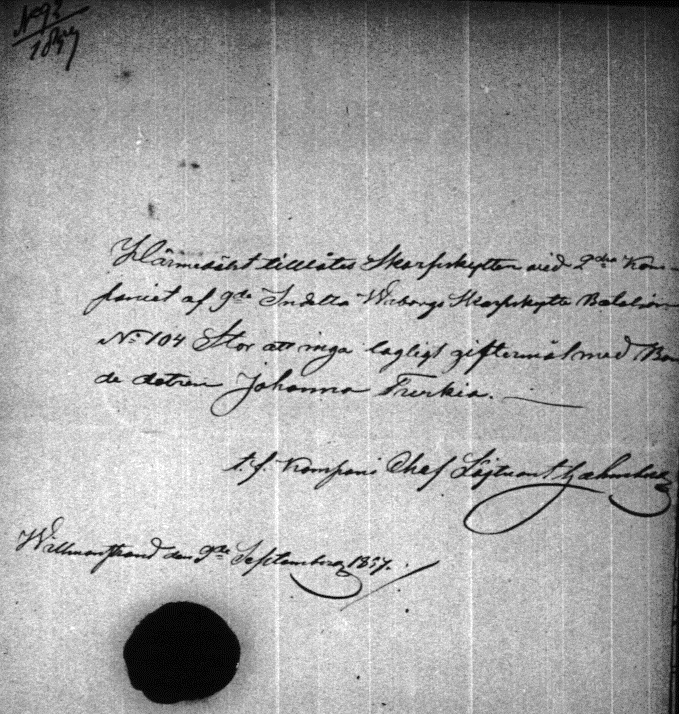 No 93
1857
Härmedelst tillåtes Skarpskytten vid 2dra Kom-
paniet af 9de Indelta Wiborgs Skarpskytte Bataljon
No 104 Stor att inga lagligt giftermål med Bon
de dotren Johanna Turkia.
t. f. Kompani Chef Löjtnant
Willmanstrand den 9de September 1857.